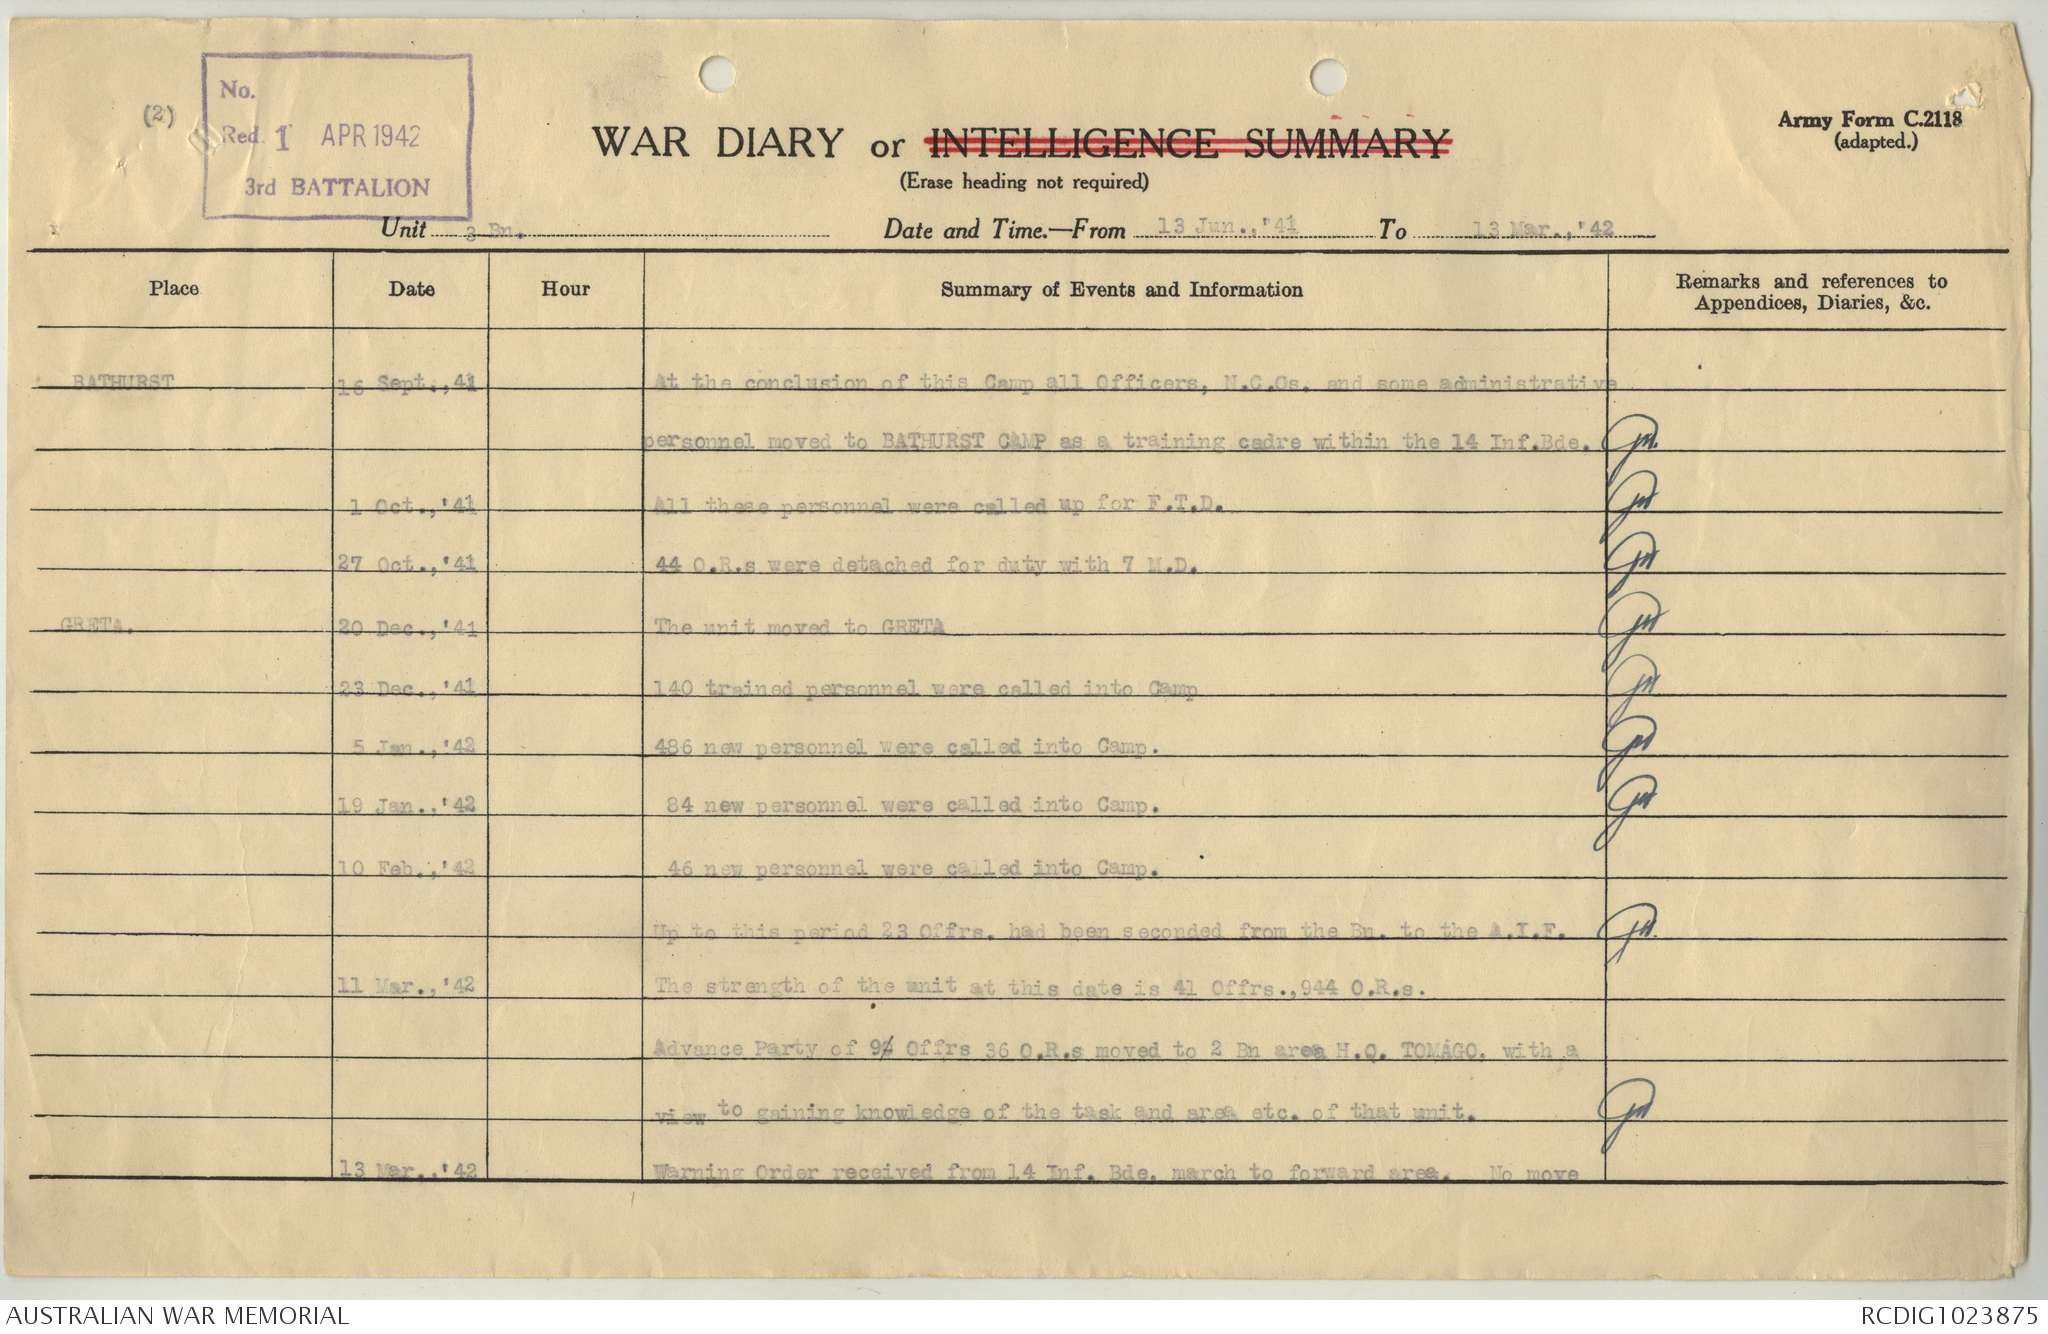 (2)
No.
Red. 1 APR 1942
3rd BATTALION
WAR DIARY or INTELLIGENCE SUMMARY
(Erase heading not required)
Army Form C.2118
(adapted.)
Unit 3 Bn. Date and Time.—From 13 Jun., '41 To 13 Mar., '42
Place Date Hour Summary of Events and Information Remarks and references to Appendices, Diaries, &c.
BATHURST 16 Sept., 41 At the conclusion of this Camp all Officers, N.C.Os. and some administrative
personnel moved to BATHURST CAMP as a training cadre within the 14 Inf.Bde.
1 Oct., '41 All these personnel were called up for F.T.D.
27 Oct., '41 44 O.R.s were detached for duty with 7 M.D.
GRETA. 20 Dec., '41 The unit moved to GRETA
23 Dec., '41 140 trained personnel were called into Camp
5 Jan., '42 486 new personnel were called into Camp.
19 Jan., '42 84 new personnel were called into Camp.
10 Feb., '42 46 new personnel were called into Camp.
Up to this period 23 Offrs. had been seconded from the Bn. to the A.I.F.
11 Mar., '42 The strength of the unit at this date is 41 Offrs., 944 O.R.s.
Advance Party of 9 Offrs 36 O.R.s moved to 2 Bn area H.Q. TOMAGO, with a
view to gaining knowledge of the task and area etc. of that unit.
13 Mar., '42 Warning Order received from 14 Inf. Bde. march to forward area. No move
AUSTRALIAN WAR MEMORIAL
RCDIG1023875